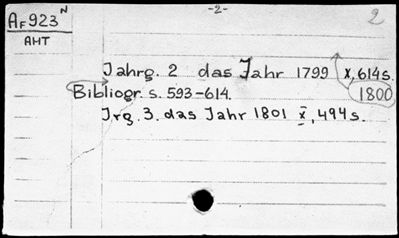 AF923 N
AHT
-2-
2
Jahrg. 2 das Jahr 1799 x, 614 s.
1800
Bibliogr. s. 593-614.
Jrg. 3. das Jahr 1801 x, 494 s.